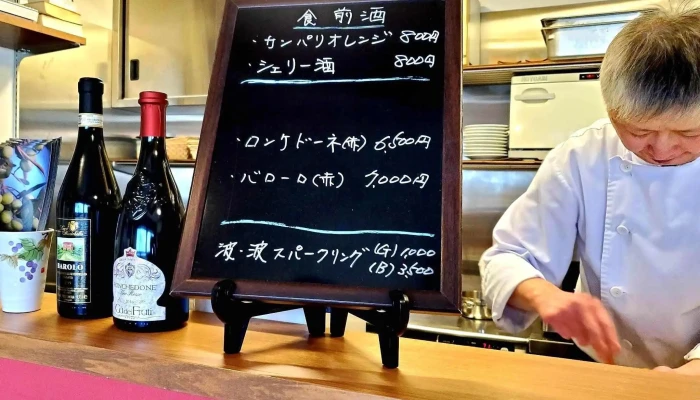 食前酒
・カンパリオレンジ 800円
・シェリー酒 800円
・ロンケドーネ(赤) 6,500円
・バローロ(赤) 7,000円
波・波 スパークリング (G) 1,000
(B) 3,500
BAROLO
RONCHEDONE
Ca dei Frati